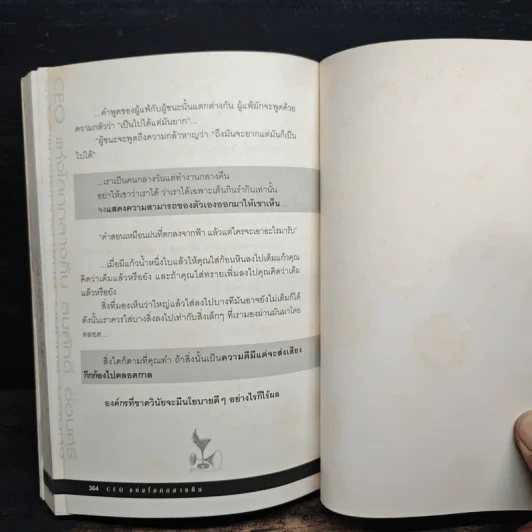 ...คำพูดของผู้แพ้กับผู้ชนะนั้นแตกต่างกัน ผู้แพ้มักจะพูดด้วย
ความกลัวว่า "เป็นไปได้แต่มันยาก"...
"ผู้ชนะจะพูดถึงความกล้าหาญว่า "ถึงมันจะยากแต่มันก็เป็น
ไปได้"
...เราเป็นคนกลางวันแต่ทำงานกลางคืน
อย่าให้เขาว่าเราได้ ว่าเราได้เฉพาะเต้นกินรำกินเท่านั้น
จงแสดงความสามารถของตัวเองออกมาให้เขาเห็น...
"คำสอนเหมือนฝนที่ตกลงจากฟ้า แล้วแต่ใครจะเอาอะไรมารับ"
...เมื่อมีแก้วน้ำหนึ่งใบแล้วให้คุณใส่ก้อนหินลงไปเต็มแก้วคุณ
คิดว่าเต็มแล้วหรือยัง และถ้าคุณใส่ทรายเพิ่มลงไปคุณคิดว่าเต็ม
แล้วหรือยัง
สิ่งที่มองเห็นว่าใหญ่แล้วใส่ลงไปบางทีมันอาจยังไม่เต็มก็ได้
ดังนั้นเราควรใส่บางสิ่งลงไปเท่ากับสิ่งเล็กๆ ที่เรามองผ่านมันมาโดย
ตลอด...
สิ่งใดก็ตามที่คุณทำ ถ้าสิ่งนั้นเป็นความดีมีแต่จะส่งเสียง
กึกก้องไปตลอดกาล
องค์กรที่ขาดวินัยจะมีนโยบายดีๆ อย่างไรก็ไร้ผล
304 CEO แห่งโลกกลางคืน